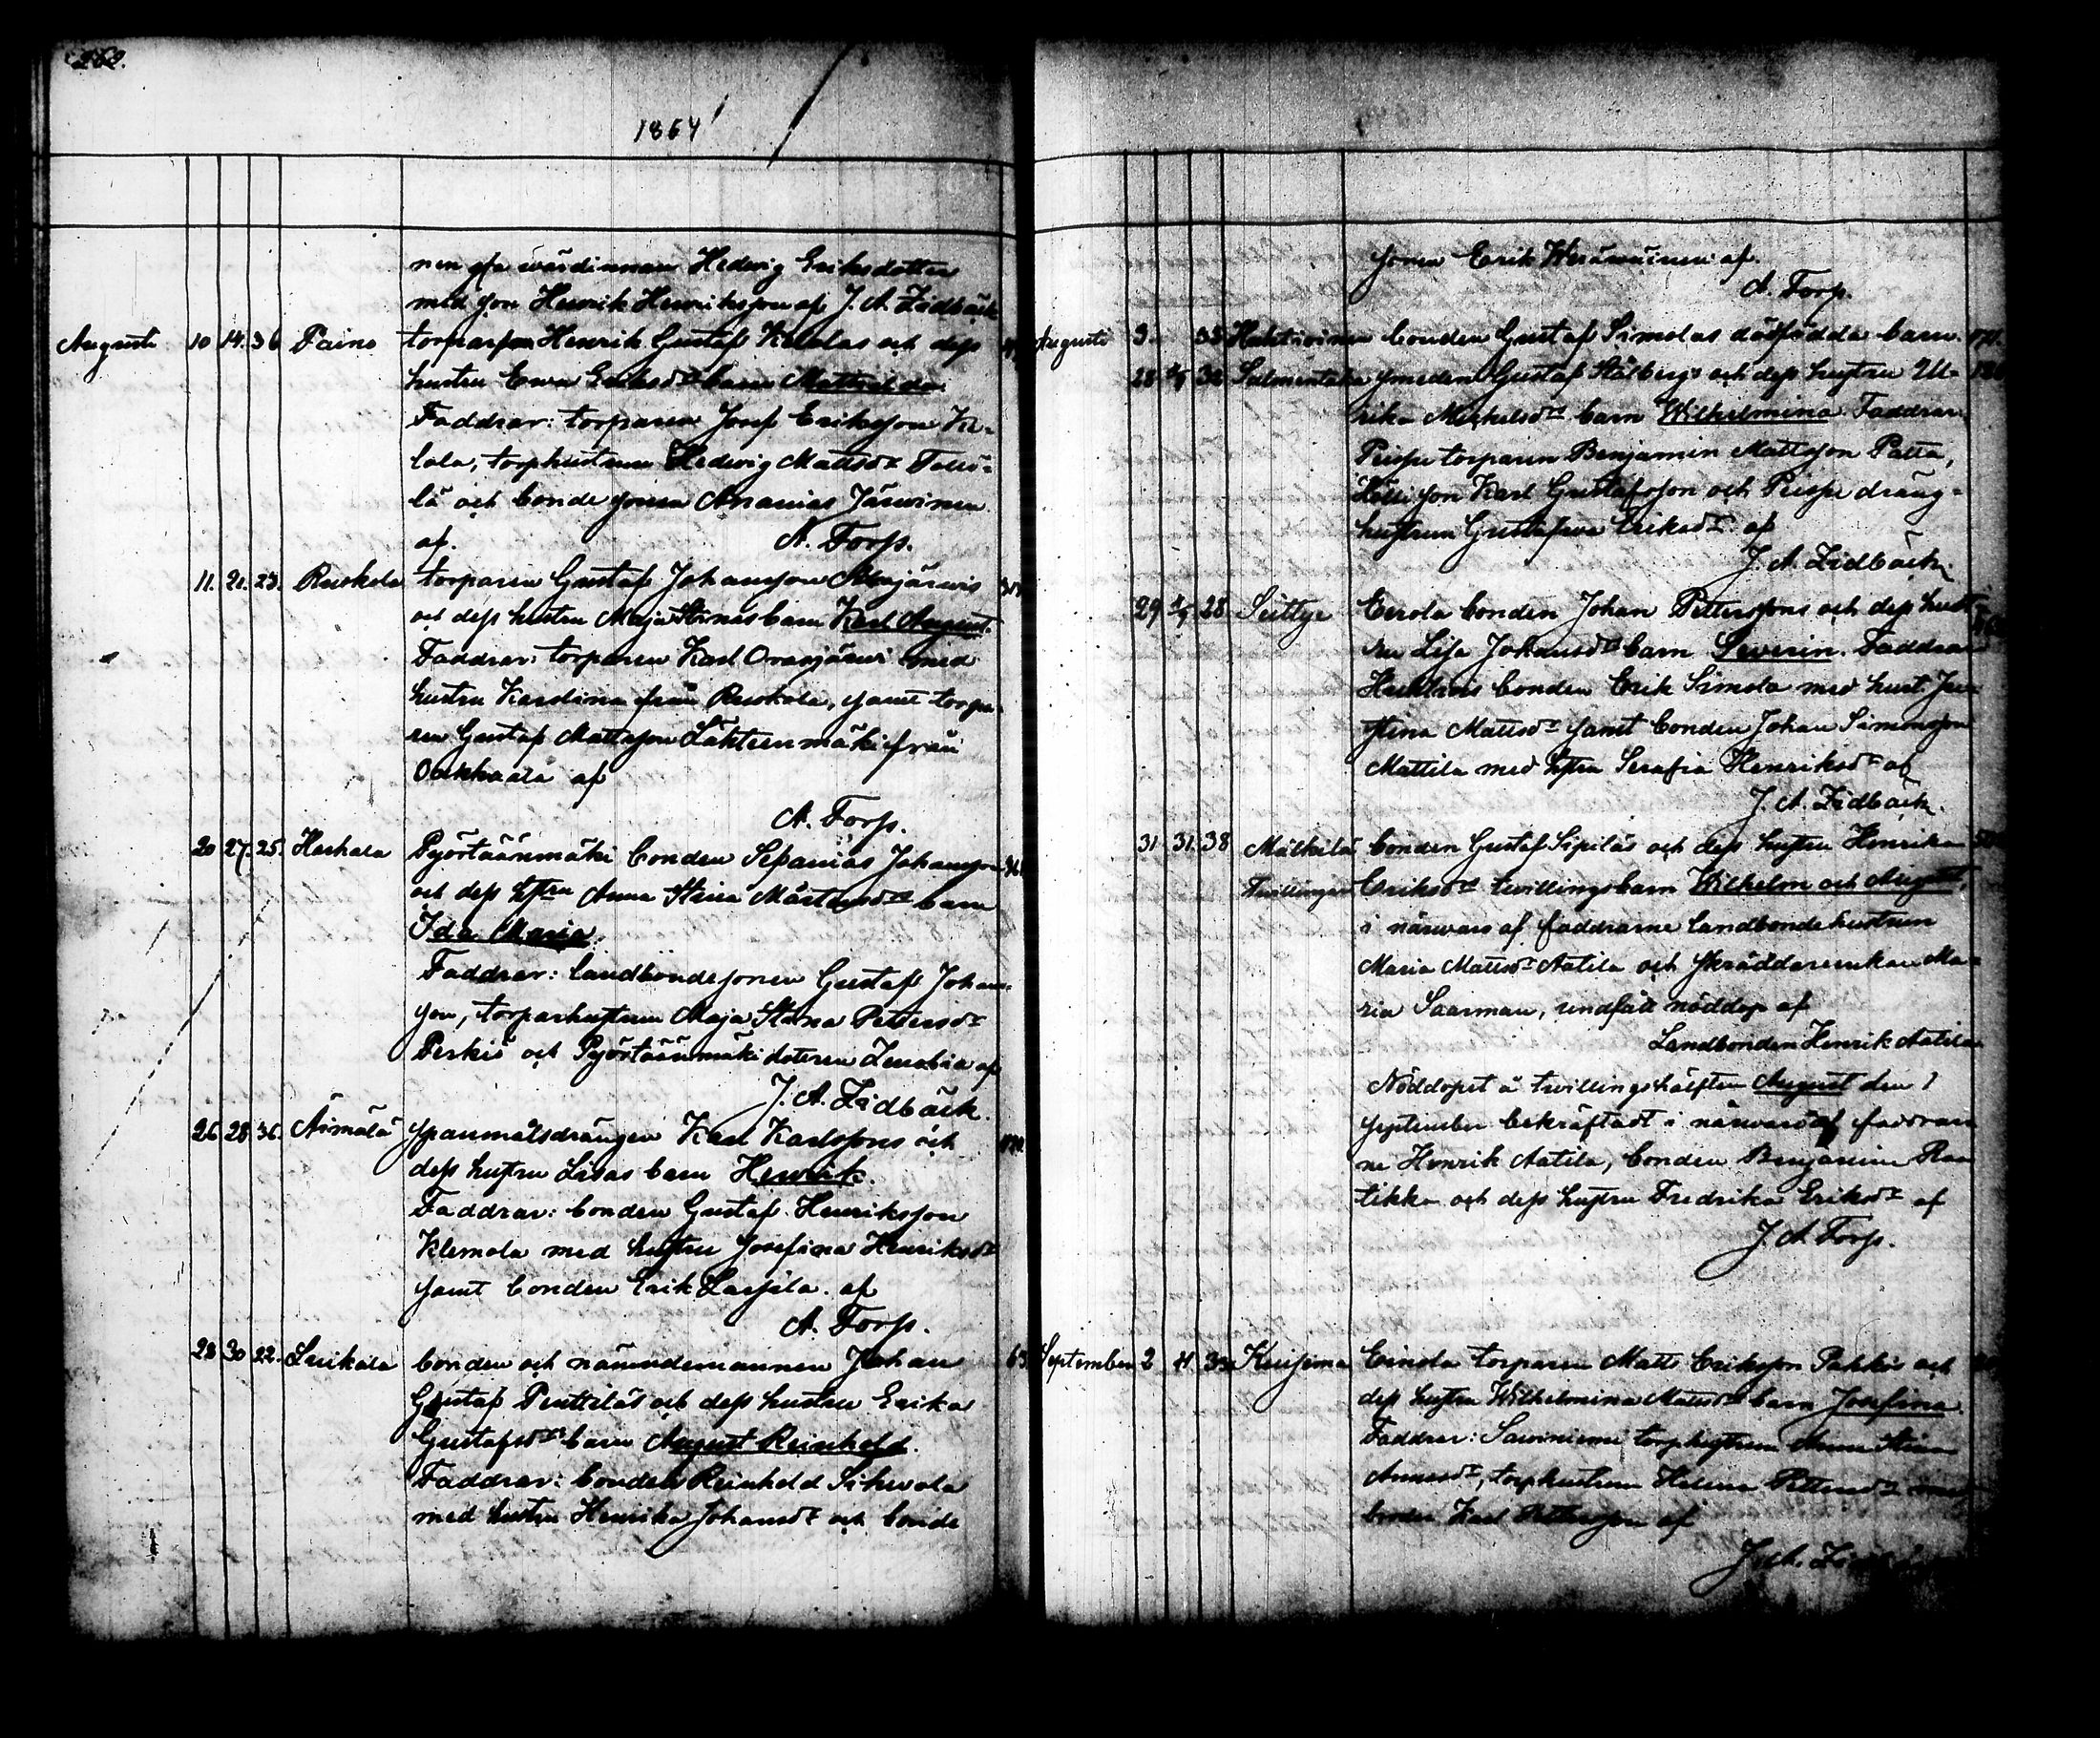 262.
1864
nen gfa wärdinnan Hedvig Eriksdotter
med son Henrik Henriksson af J. A. Zidbäck
Augusti 10 14. 36 Taino torparson Henrik Gustaf Kilolas och dess
hustru Ewa Eriksdr barn Mathilda.
Faddrar: torparen Josef Eriksson Ki-
lola, torphustrun Hedvig Matsdr
lä och bondesonen Ananias Järvinen
af. A. Forss.
11. 21. 23. Ruskola torparen Gustaf Johansson
och dess hustru Maja Stinas barn Karl August.
Faddrar: torparen Karl Orasjärvi med
hustru Karolina från Ruskola, samt torpa-
ren Gustaf Mattsson Lähteenmäki från
af
A. Forss.
20 27. 25. Haihala Pyörtäänmäki bonden Sefanias Johansson
och dess hstru Anna Stina Mårtensdr barn
Ida Maria.
Faddrar: landbondesonen Gustaf Johans-
son, torparhustrun Maja Stina Pettersdr
Perkiö och Pyörtäänmäki dotren Zenobia af
J. A. Zidbäck.
26 28 36. Äimälä spanmålsdrängen Karl Karlssons och
dess hustru Lisas barn Henrik.
Faddrar: bonden Gustaf Henriksson
Klemola med hustru Josefina Henriksdr
samt bonden Erik Lassila. af
A. Forss.
28 30 22. Luikala bonden och nämndemannen Johan
Gustaf Penttiläs och dess hustru Erika
Gustafsdr barn August Reinhold.
Faddrar: bonden Reinhold Sihvola
med hustru Henrika Johansdr och bonde
63
sonen Erik af.
A. Forss.
Augusti 9. 35 bonden Gustaf Simolas dödfödda barn. 171.
28 32 Salmentaka smeden Gustaf Stålbergs och dess hustru Ul-
rika Mickelsdr barn Wilhelmina. Faddrar:
torparen Benjamin Mattsson Patta,
son Karl Gustafsson och dräng-
hustrun Gustafva Eriksdr af
J. A. Zidbäck.
29 28 Suttye Eerola bonden Johan Petterssons och dess hust-
ru Lisa Johansdr barn Severin. Faddrar
bonden Erik Simola med hust. Ju-
stina Mattsdr samt bonden Johan Simonsson
Mattila med hstru Serafia Henriksdr af
J. A. Zidbäck.
31 31. 38 Mälkilä bonden Gustaf Sipiläs och dess hustru Henrika
Tvillingar Eriksdr twillingsbarn Wilhelm och August,
i närvaro af faddrarne landbondehustrun
Maria Mattsdr Aatila och skräddareenkan Ma-
ria Saarman, undfått nöddop af
Landbonden Henrik Aatila.
Nöddopet å twillingshälften August den 1
September bekräftadt i närvaro af faddrar
ne Henrik Aatila, bonden Benjamin Rau
tikka och dess hustru Fredrika Eriksdr af
J. A. Forss.
September 2 4. 33 Kuisema Einola torparen Matts Eriksson Pakkis och
dess hustru Wilhelmina Mattsdr barn Josefina.
Faddrar: Savinieni torphustrun Anna Stina
torphustrun Helena Pettersdr
Karl Pettersson af